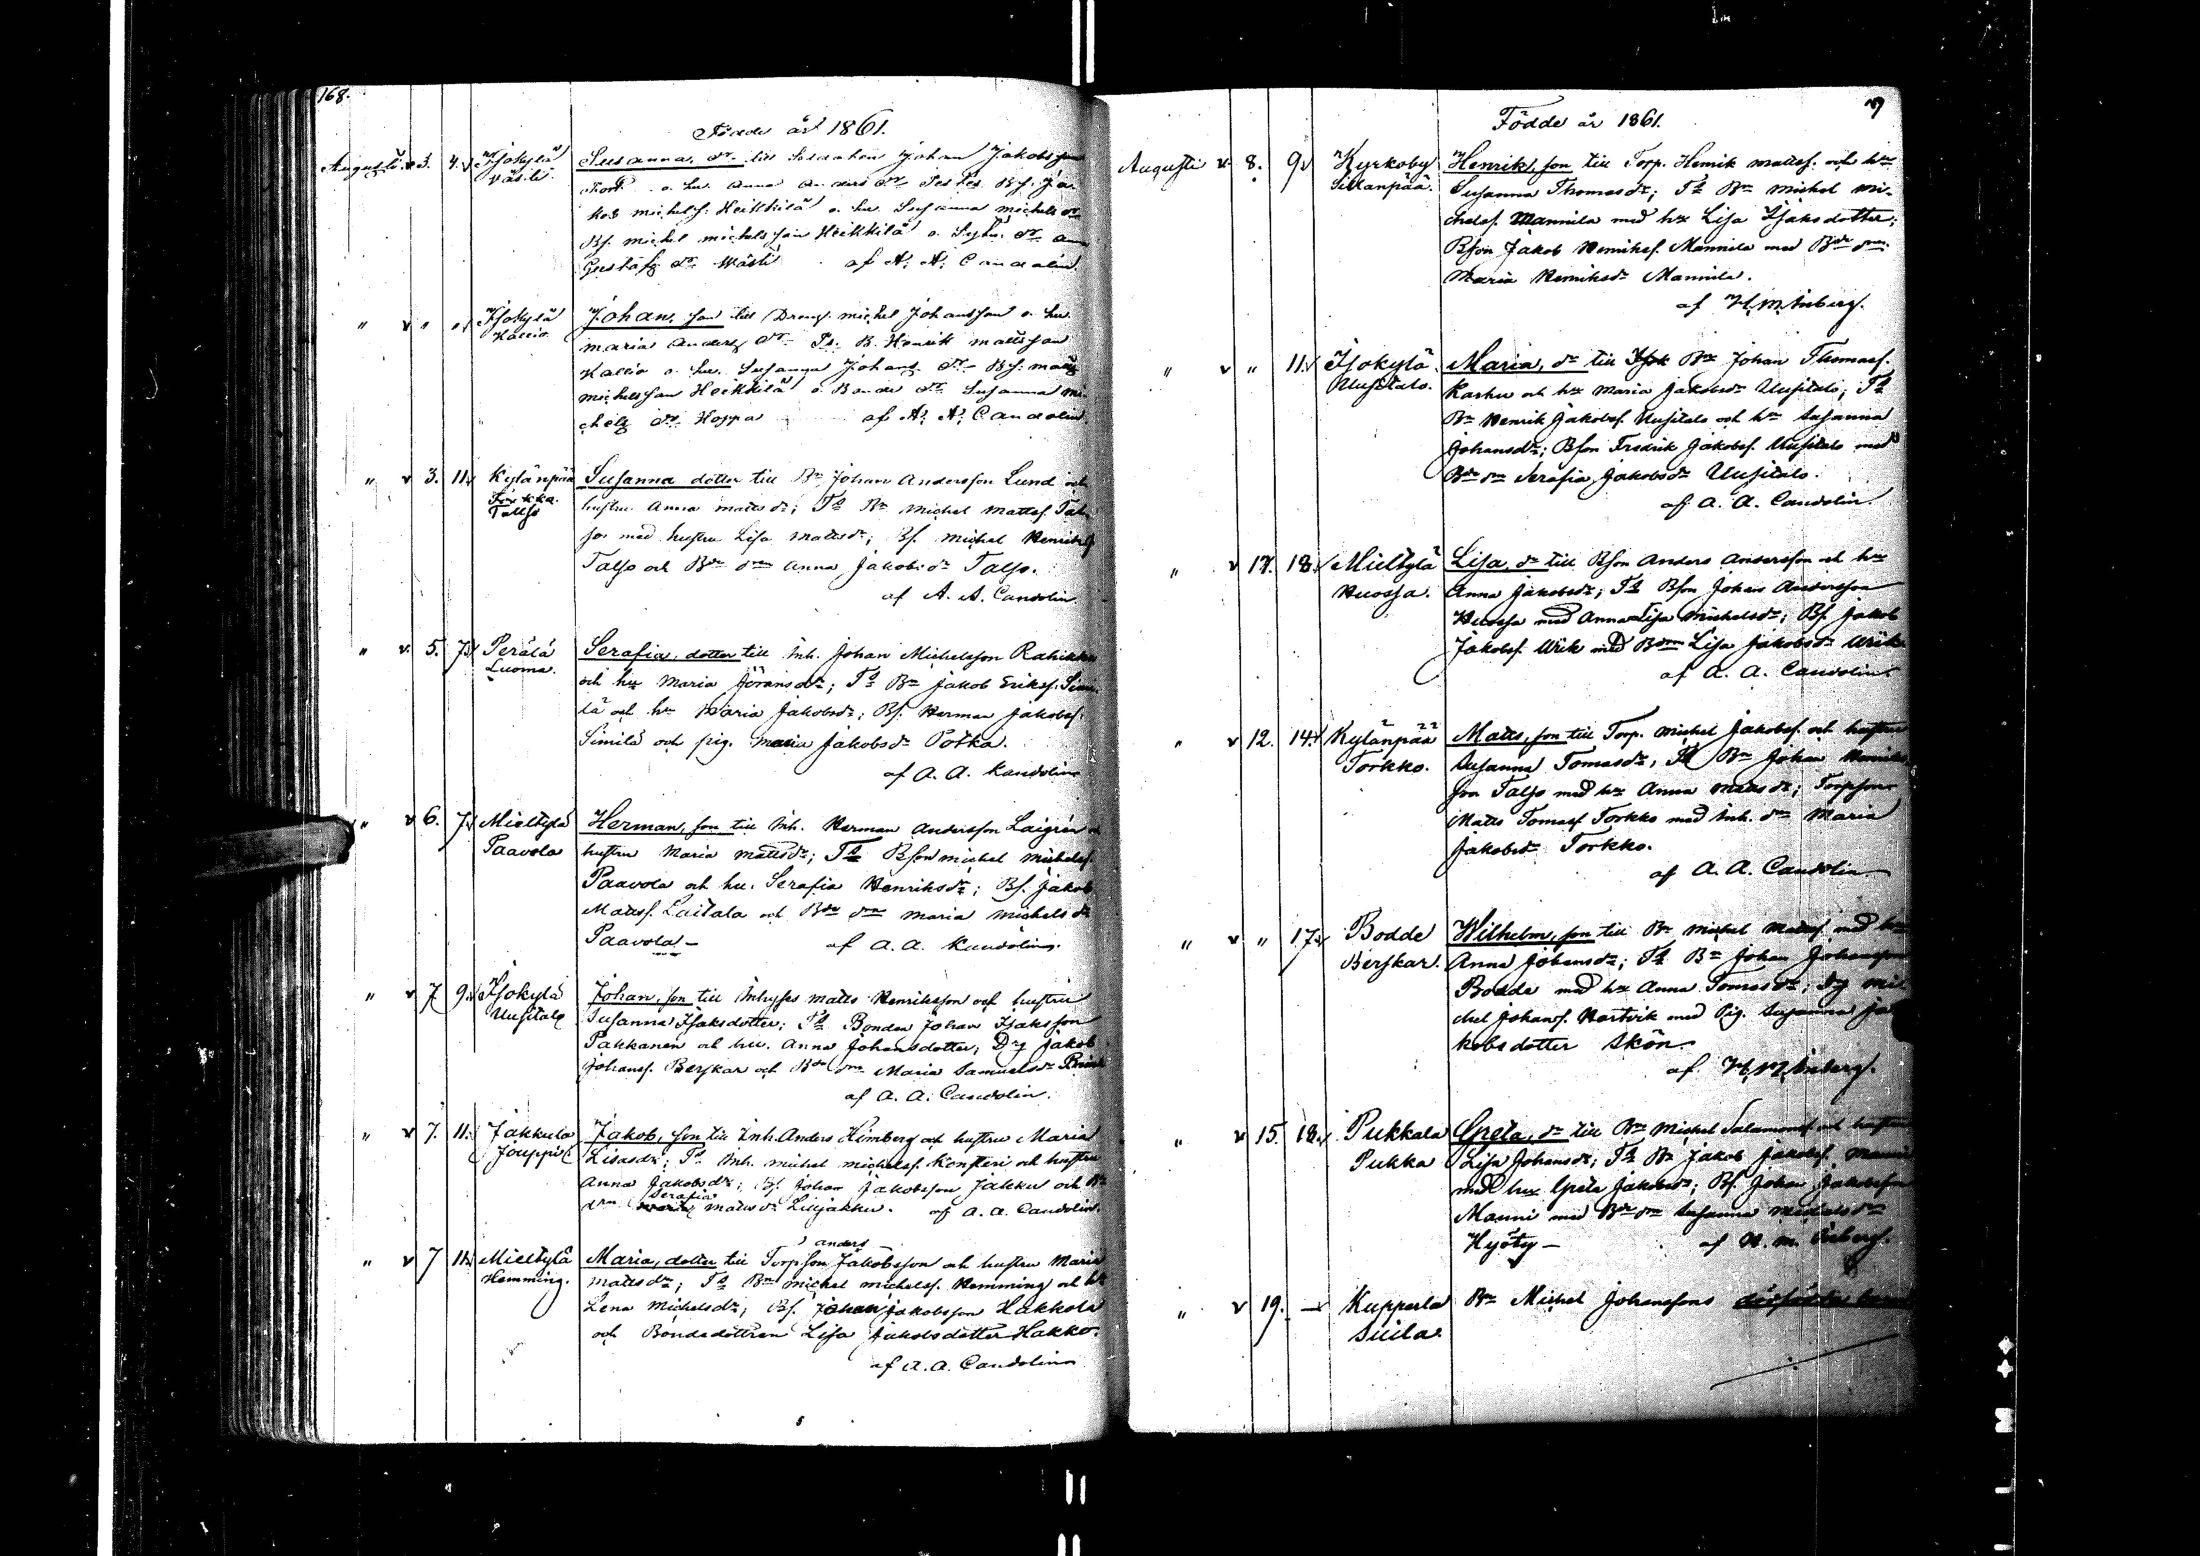 168.
Födde år 1861.
Augusti v 3. 4. v Isokylä Susanna, dr. till Soldaten Johan Jakobsson
Västi. o. hu. Anna Anders dr Testes Bs. Ja-
kob michelss. Heikkilä o. hu. Susanna michels dr
Bs. michel michelsson Heikkilä o. dr.
Gustafs dr. Wästi af A. A. Candolin.
" v " " Isokylä Johan, son till Dreng. michel Johansson o. hu.
Kallio maria Anders dr Ts. B. Henrik mattsson
Kallio o. hu. Susanna Johans. dr Bs. matts
michelsson Heikkilä o Bonde dr. Susanna mi-
chels dr. Hoppa af A. A. Candolin.
" v 3. 11. v Kylänpää Susanna dotter till Bn Johan Andersson Lund och
Torkka. hustru Anna mattsdr; Ts Bn michel mattss. Tal-
Taljo jos med hustru Lisa mattsdr; Bs. michel Henriks
Taljo och Bde drn Anna Jakobsdr Taljo.
af A. A. Candolin.
" v. 5. 7. v Perälä Serafia, dotter till Inh. Johan Michelsson Rahikka
Luoma. och hu Maria Göransdr; Ts Bn Jakob Erikss. Simi-
lä och hu Maria Jakobsdr; Bs. Herman Jakobss.
Similä och pig. Maria Jakobsdr Potka.
af A. A. Kandolin
" v 6. 7. v Mieltylä Herman, son till Inh. Herman Andersson Laigrén o
Paavola hustru Maria mattsdr; Ts Bson michel michelss.
Paavola och hu. Serafia Henriksdr; Bs. Jakob
Mattss. Laitala och Bde drn maria michelsdr
Paavola. — af A. A. Kandolin.
" v 7 9. v Isokylä Johan, son till Inhyses matts Henriksson och hustru
Uusitalo Susanna Isaksdotter; Ts Bonden Johan Isaksson
Pakkanen och hu. Anna Johansdotter; Drg Jakob
Johanss. Berskar och Bde drn Maria Samuelsdr
af A. A. Candolin.
" v 7. 11. Jakkula Jakob, son till Inh. Anders Himberg och hustru Maria
Jouppi. Lisasdr; Ts Inh. michel michelss. Konsteri och hustru
Anna Jakobsdr; Bs. Johan Jakobsson Jakku och Bde
Serafia
drn mattsdr Liljakku. af A. A. Candolin.
anders
" v 7 11. Mieltylä Maria, dotter till Torpson Jakobsson och hustru Maria
Hemming. mattsdr; Ts Bn michel michelss. Hemming och hu
Lena Michelsdr; Bs. Johan Jakobsson Hakkola
och Bondedottren Lisa Jakobsdotter Hakko.
af A. A. Candolin
Födde år 1861.
Augusti v. 8. 9. v Kyrkoby Henrik, son till Torp. Henrik mattss. och hu
Sillanpää. Susanna Thomasdr; Ts Bn michel mi-
chelss. Mannila med hu Lisa Isaksdotter;
Bson Jakob Henrikss. Mannila med Bde drn
Maria Henriksdr Mannila.
af H. M. Inberg.
" v " 11. v Isokylä Maria, dr till Bn Johan Thomass.
Uusitalo. Karhu och hu Maria Jakobsdr Uusitalo; Ts
Bn Henrik Jakobss. Uusitalo och hu Susanna
Johansdr; Bson Fredrik Jakobss. Uusitalo med
Bde drn Serafia Jakobsdr Uusitalo.
af A. A. Candolin
" v 17. 18. Mieltylä Lisa, dr till Bson Anders Andersson och hu
Huossa. Anna Jakobsdr; Ts Bson Johan Andersson
Huossa med Anna Lisa michelsdr; Bs. Jakob
Jakobss. Wrik med Bdrn Lisa Jakobsdr Wrik
af A. A. Candolin
" v 12. 14. v Kylänpää Matts, son till Torp. michel Jakobss. och hustru
Torkko. Susanna Tomasdr; Ts Bn Johan Henriks-
son Taljo med hu Anna mattsdr; Torpson
Matts Tomass Torkko med Inh. drn Maria
Jakobsdr Torkko.
af A. A. Candolin
" v " 17. v Bodde Wilhelm, son till Bn michel Mattss. med hu
Berskar. Anna Johansdr; Ts Bn Johan Johansson
Bodde med hu Anna Tomasdr; Drg mi-
chel Johanss. Hartvik med Pig. Susanna Ja-
kobsdotter Skön.
af H. M. Inberg.
" v 15. 18. v Pukkala Greta, dr till Bn Michel Salamonss och hustru
Pukka Lisa Johansdr; Ts Bn Jakob Jakobss. Manni
med hu Greta Jakobsdr; Bs. Johan Jakobsson
Manni med Bde drn Susanna michelsdr
Hyöty — af H. M. Inberg.
" v 19. — Kupparla Bn Michel Johanssons
Sicila.